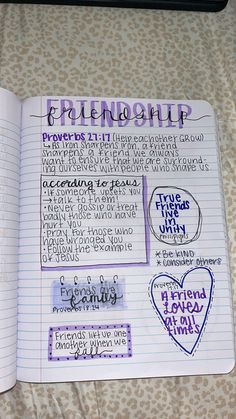 FRIENDSHIP
friendship
Proverbs 27:17 (Help each other GROW)
↳ As iron sharpens iron, a friend
sharpens a friend. We always
want to ensure that we are surround-
ing ourselves with people who shape us.
according to Jesus
• If someone upsets you
→ talk to them!
• Never gossip or treat
badly those who have
hurt you
• pray for those who
have wronged you
• Follow the example
of Jesus
True
Friends
live
in
unity
× Be KIND
× Consider others
Friends are
family
Proverbs
Friends lift up one
another when we
fall
Proverbs
A Friend
Loves
at all
times